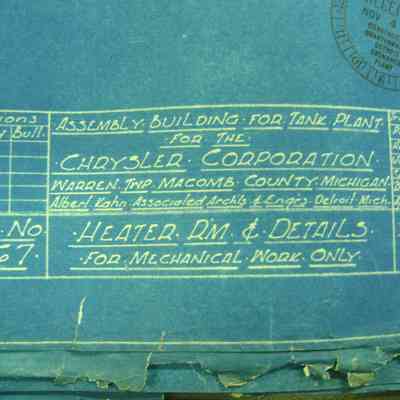 NOV 4
Bull.
ASSEMBLY BUILDING FOR TANK PLANT
FOR THE
CHRYSLER CORPORATION
WARREN TWP. MACOMB COUNTY, MICHIGAN
Albert Kahn Associated Archts. & Engrs. Detroit Mich.
No.
67.
HEATER R'M & DETAILS
FOR MECHANICAL WORK ONLY